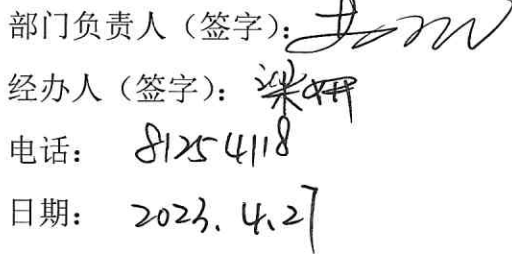 部门负责人（签字）：
经办人（签字）：梁姗
电话： 81254118
日期： 2023.4.27